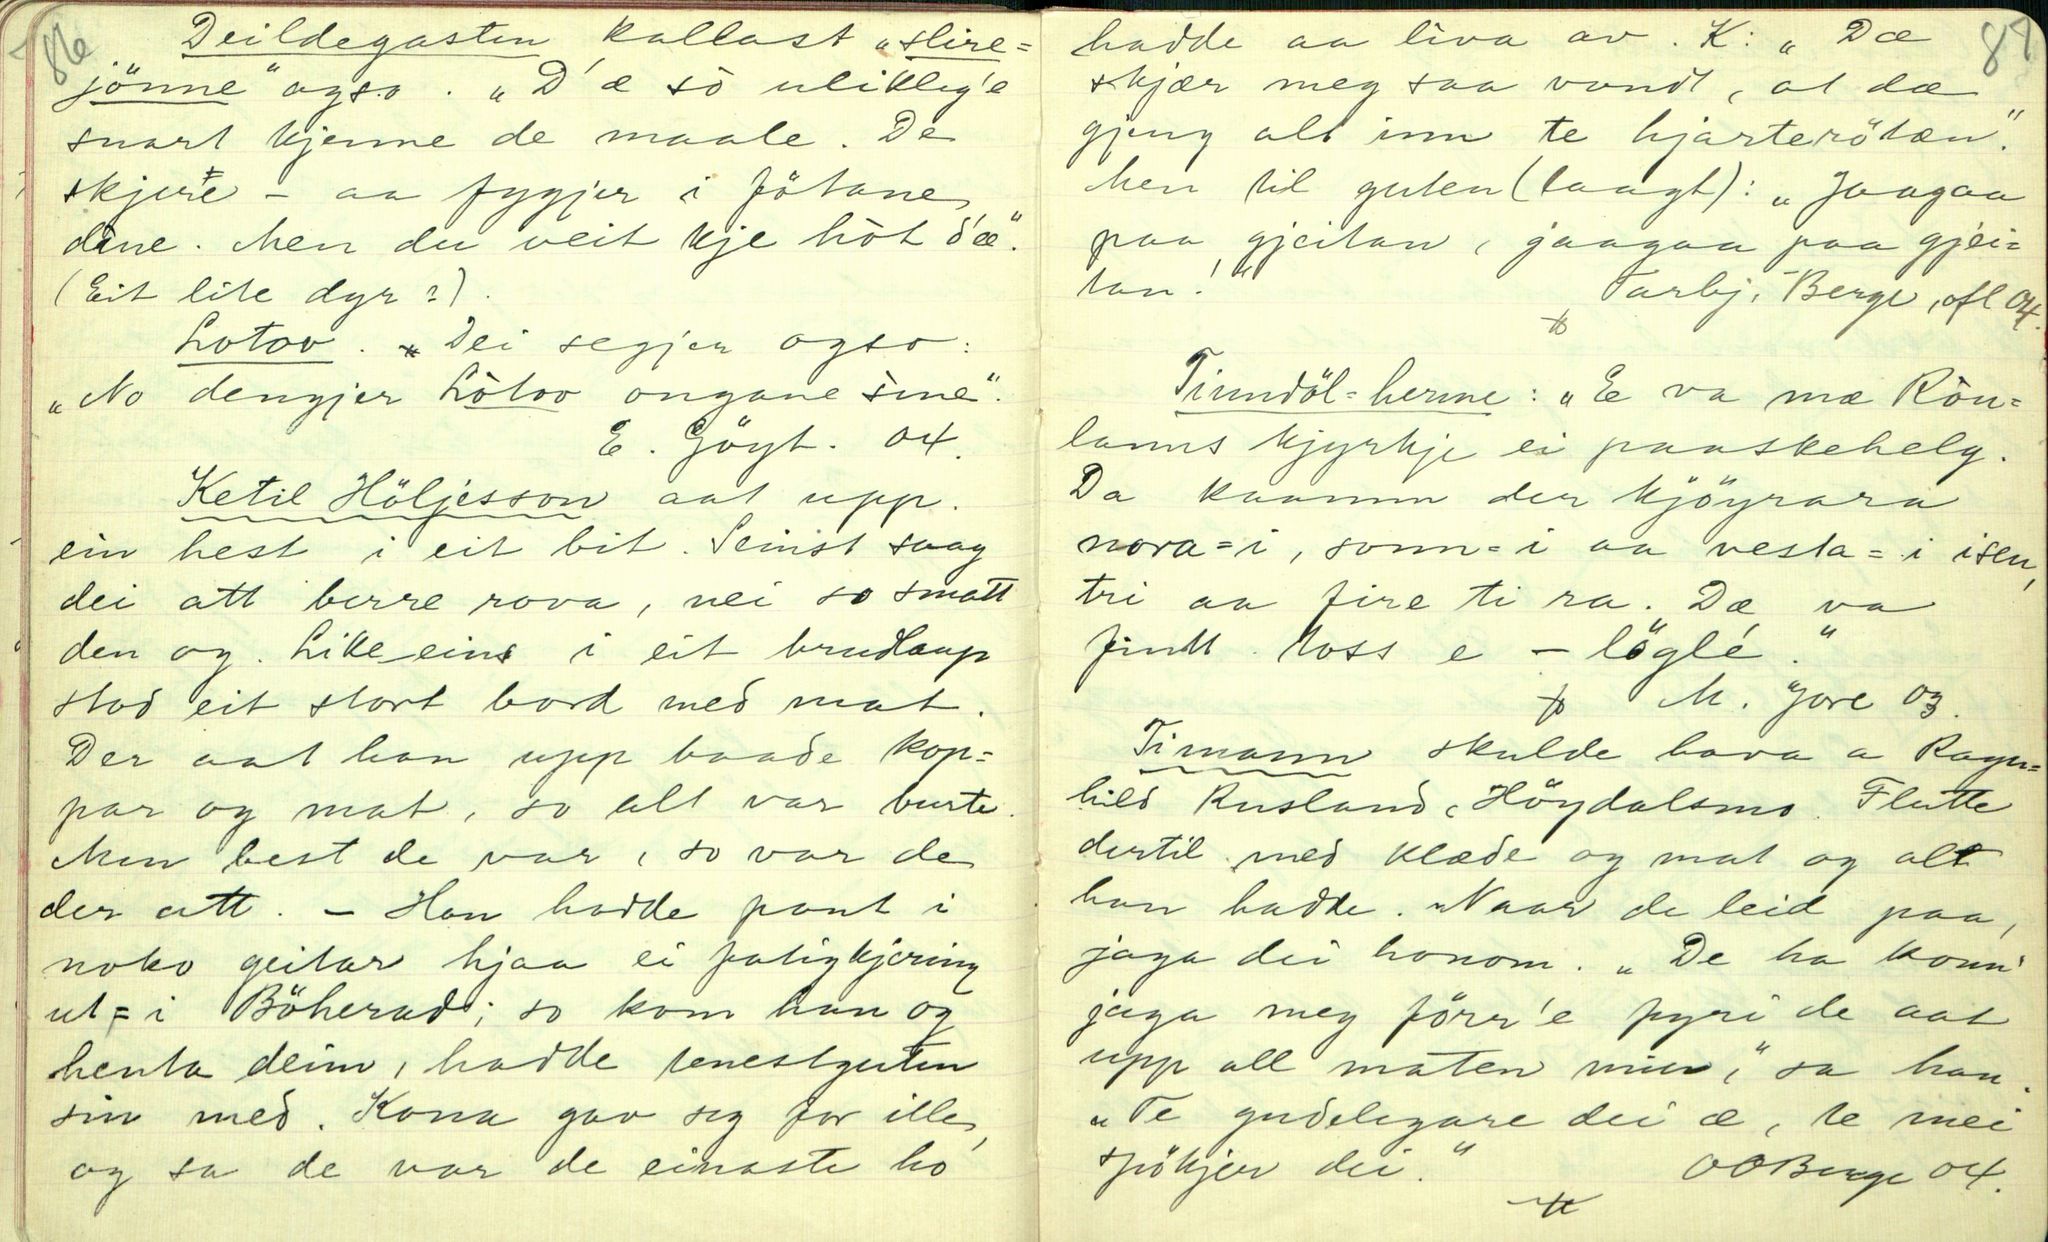 86
Deildegasten kallast "slire=
jönne" ogso. "D'æ sò uliklég'e
snart kjenne de maale. De
skjere - aa fygjer i fötane
dine. Men du veit kje hòt d'æ".
(Eit lite dyr?).
Lotov. "Dei segjer ogso:
"No dengjer Lòtov ongane sine".
E. Göyt. 04.
Ketil Höljesson aat upp
ein hest i eit bit. Seinst saag
dei att berre rova, nei so smatt
den og. Like eins i eit brudlaup
stod eit stort bord med mat.
Der aat han upp baade kop=
par og mat, so alt var burte.
Men best de var, so var de
der att. - Han hadde pant i
noko geitar hjaa ei fatigkjering
ut=i Böherad; so kom han og
henta deim, hadde tenestguten
sin med. Kona gav seg for ille,
og sa de var de einaste ho
87
hadde aa liva av. K: "Dæ
skjær meg saa vondt, at dæ
gjeng alt inn te hjarterötæn."
Men til guten (laagt): "Jaagaa
paa gjeitan, jaagaa paa gjei=
tan!"
Tarbj. Berge, ofl 04.
Tinndöl=herme: "E va mæ Ròu=
lanns kjyrkje ei paaskehelg.
Da kaamm der kjöyrara
nora=i, sonn=i aa vesta=i isen,
tri aa fire ti ra. Dæ va
fintt toss e - löglé."
M. Jore 03.
Timann skulde hava a Ragn=
hild Rusland, Höydalsmo. Flutte
dertil med klæde og mat og alt
han hadde. Naar de leid paa,
jaga dei honom. "De ha konn'
jaga meg förr'e fyri de aat
upp all maten min," sa han.
"Te gudelegare dei æ, te mei
spökjer dei."
OOBerge 04.